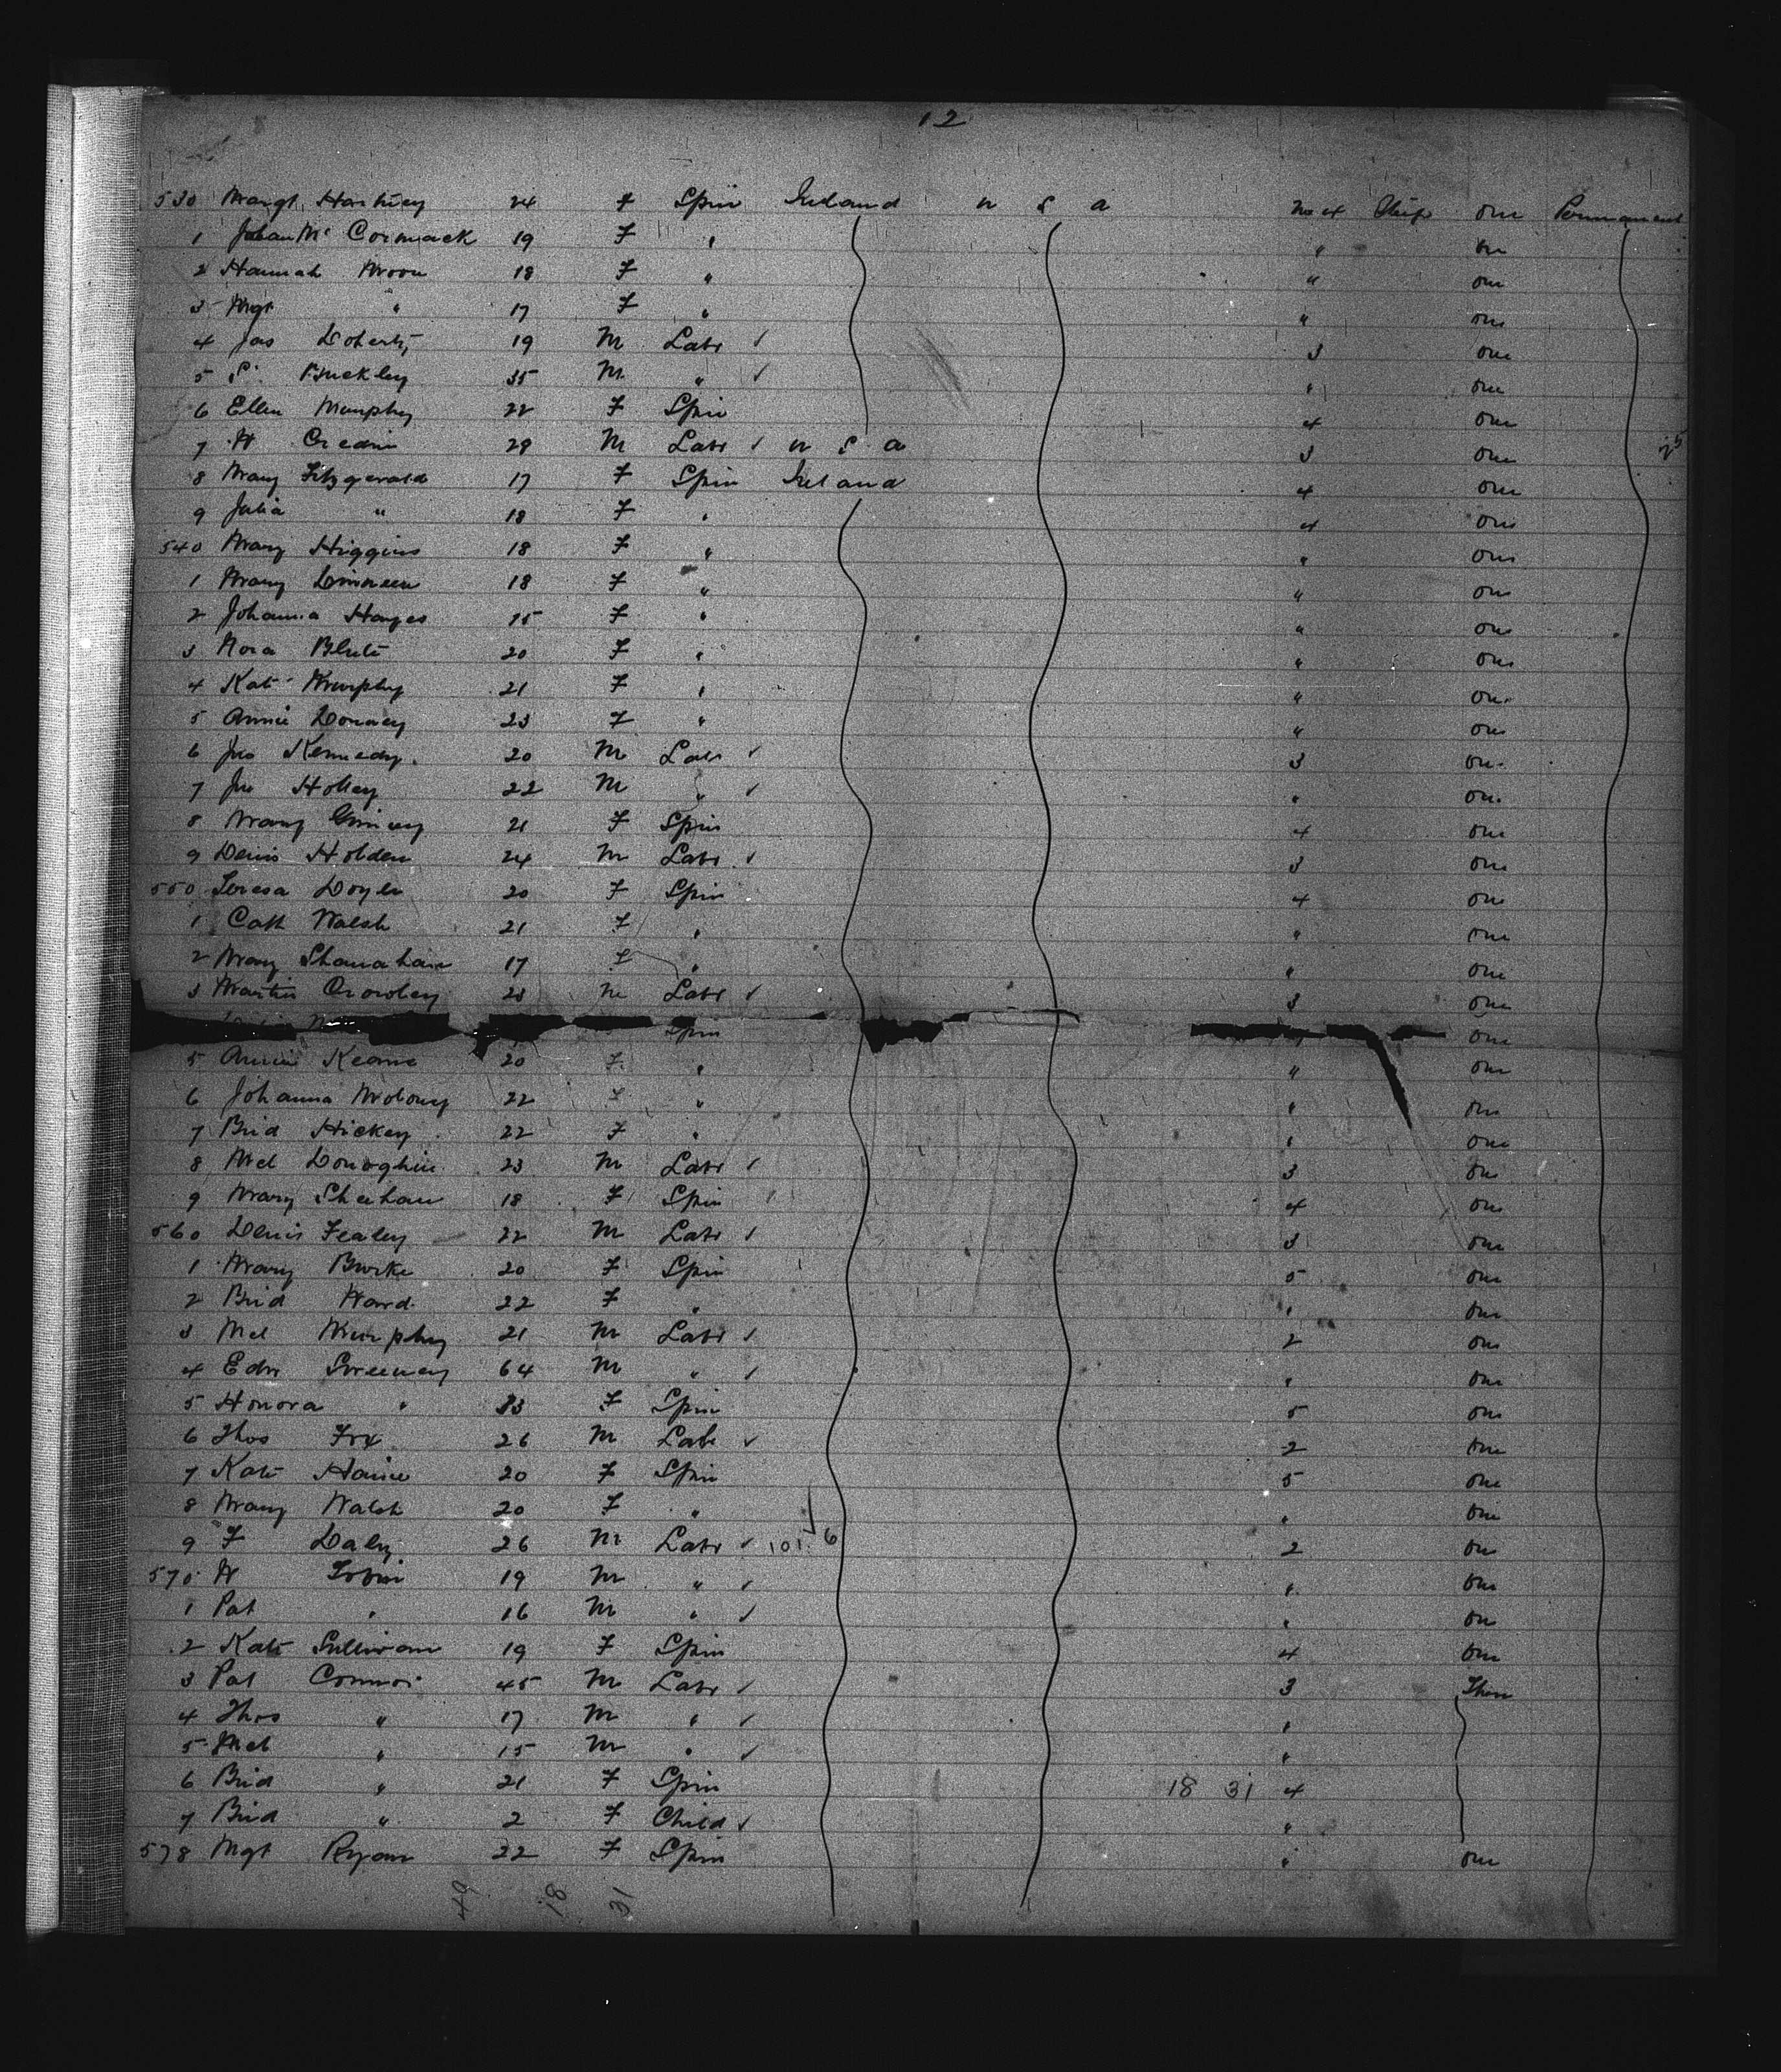 12
530 Margt Hartney 24 F Spin Ireland U S A No 4 Ship one Permanent
1 Johan Mc Cormack 19 F " " one
2 Hannah Moore 18 F " " one
3 Mgt " 17 F " " one
4 Jas Doherty 19 M Labr ✓ 3 one
5 P. Buckley 35 M " ✓ " one
6 Ellen Murphy 22 F Spin 4 one
7 W Credin 28 M Labr ✓ U S A 3 one
8 Mary Fitzgerald 17 F Spin Ireland 4 one
9 Julia " 18 F " 4 one
540 Mary Higgins 18 F " " one
1 Mary Dinneen 18 F " " one
2 Johanna Hayes 15 F " " one
3 Nora 20 F " " one
4 Kate Murphy 21 F " " one
5 Annie Downey 23 F " " one
6 Jno Kennedy 20 M Labr ✓ 3 one
7 Jno Holley 22 M " ✓ " one
8 Mary 21 F Spin 4 one
9 Denis Holden 24 M Labr ✓ 3 one
550 Teresa Doyle 20 F Spin 4 one
1 Cath Walsh 21 F " " one
2 Mary Shanahan 17 F " " one
3 Martin Crowley 23 M Labr ✓ 3 one
Spin one
5 Annie Keane 20 F " " one
6 Johanna Moloney 22 F " " one
7 Brid Hickey 22 F " " one
8 Mcl Donoghue 23 M Labr ✓ 3 one
9 Mary Sheehan 18 F Spin 4 one
560 Denis Fealey 22 M Labr ✓ 3 one
1 Mary Burke 20 F Spin 5 one
2 Brid Ward 22 F " " one
3 Mcl Murphy 21 M Labr ✓ 2 one
4 Edw Sweeney 64 M " ✓ " one
5 Honora " 33 F Spin 5 one
6 Thos Fox 26 M Labr ✓ 2 one
7 Kate Hanie 20 F Spin 5 one
8 Mary Walsh 20 F " " one
9 F Daly 26 M Labr ✓ 101 6 2 one
570 W Tobin 19 M " ✓ " one
1 Pat " 16 M " ✓ " one
2 Kate Sullivan 19 F Spin 4 one
3 Pat Connor 45 M Labr ✓ 3 Three
4 Thos " 17 M " ✓ "
5 Mcl " 15 M " ✓ "
6 Brid " 21 F Spin 18 31 4
7 Brid " 2 F Child ✓ "
578 Mgt Ryan 22 F Spin " one
49 18 31